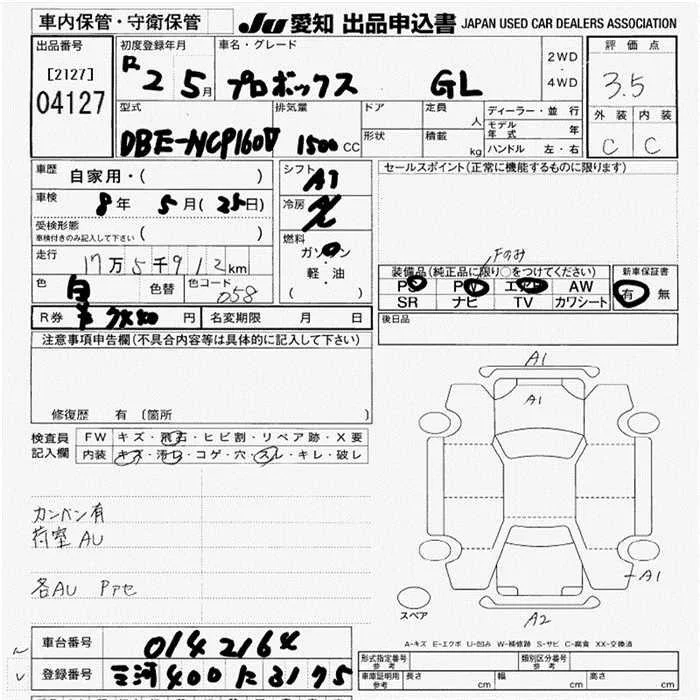 車内保管・守衛保管 JU 愛知 出品申込書 JAPAN USED CAR DEALERS ASSOCIATION
出品番号
[2127]
04127
初度登録年月
R 2 5月
車名・グレード
プロボックス GL
2WD
・
4WD
評価点
3.5
型式
DBE-NCP160V
排気量
1500 CC
ドア
形状
定員 人
積載 kg
ディーラー・並行
モデル年式 年
ハンドル 左・右
外装 内装
C C
車歴 自家用・( )
車検 8年 5月(25日)
受検形態
車検付きのみ記入して下さい ( )
走行 17万5千912km
色 白 色替 色コード 058
R券 円 名変期限 月 日
シフト AT
冷房
燃料
ガソリン
軽・油
( )
セールスポイント(正常に機能するものに限ります)
Fのみ
装備品(純正品に限り○をつけてください)
PS PW エアB AW
SR ナビ TV カワシート
新車保証書
有 無
後日品
注意事項申告欄(不具合内容等は具体的に記入して下さい)
修復歴 有 〔箇所 〕
検査員記入欄
FW キズ・飛石・ヒビ割・リペア跡・X要
内装 キズ・汚れ・コゲ・穴・スレ・キレ・破レ
カンバン有
荷室AU
各AU Pアセ
A1
A1
A1
A2
スペア
A-キズ E-エクボ U-凹み W-補修跡 S-サビ C-腐食 XX-交換済
車台番号 0142164
登録番号 三河 400 に 3175
形式指定番号 参考
類別区分番号 参考
車庫証明用 参考 長さ cm 幅 cm 高さ cm